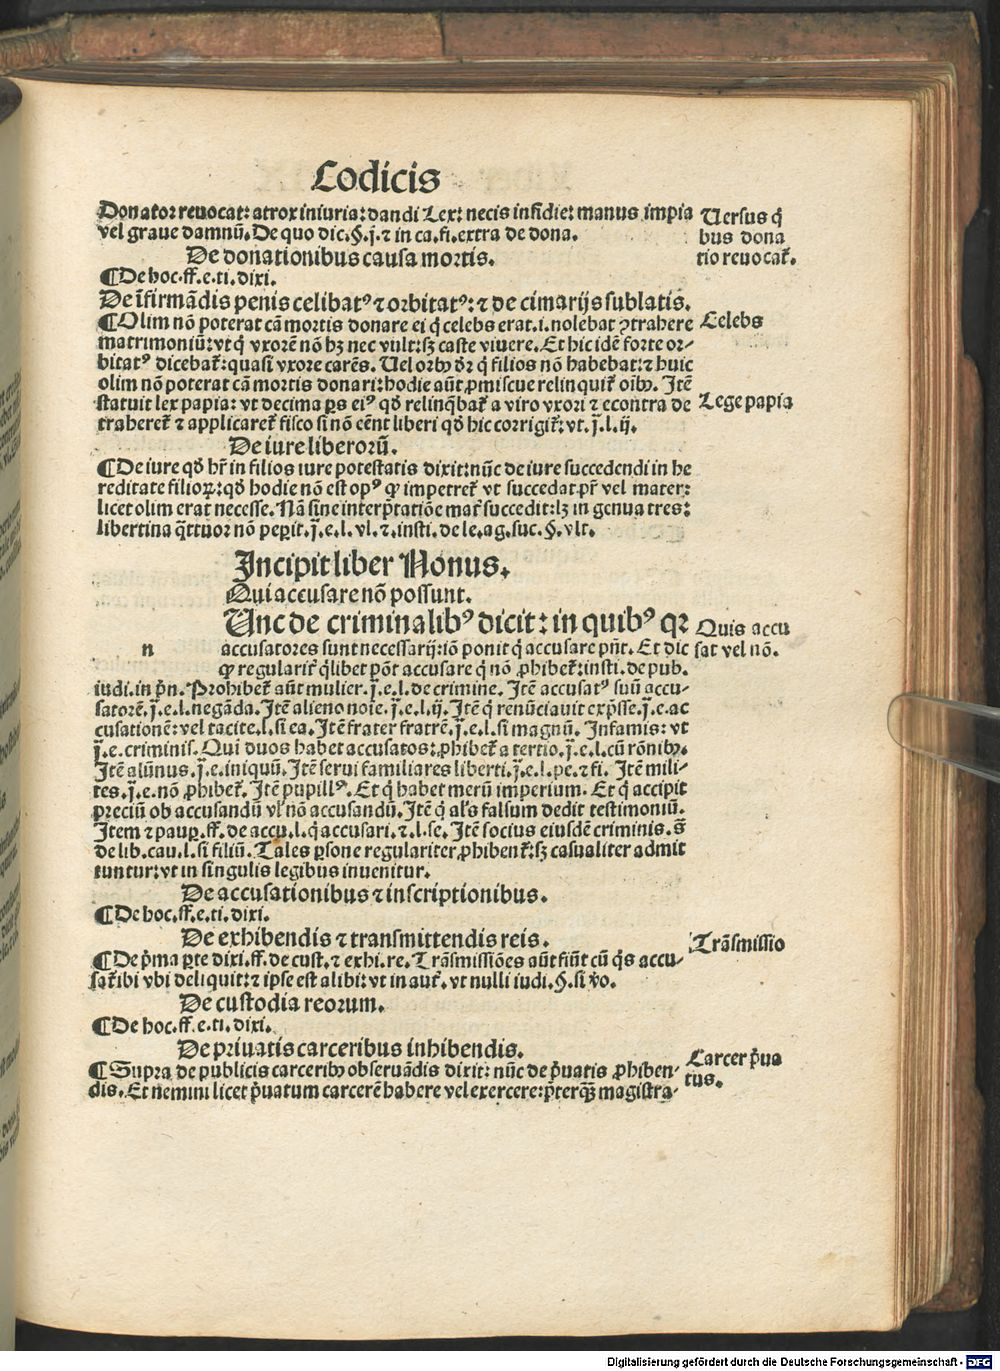 Codicis
Donator reuocat: atrox iniuria: dandi Lex: necis insidie: manus impia
vel graue damnū. De quo dic. §. j. ⁊ in ca. fi. extra de dona.
Uersus q̇
bus dona
tio reuocat̄.
De donationibus causa mortis.
¶ De hoc. ff. e. ti. dixi.
De īfirmādis penis celibatꝰ ⁊ orbitatꝰ: ⁊ de cimarijs sublatis.
¶ Olim nō poterat cā mortis donare ei q̇ celebs erat. i. nolebat ꝯtrahere
Celebs
matrimoniū: vt q̇ vxorē nō hꝫ nec vult: sꝫ caste viuere. Et hic idē forte or-
bitatꝰ dicebat̄: quasi vxore carēs. Uel orbꝰ dr̄ q̇ filios nō habebat: ⁊ huic
olim nō poterat cā mortis donari: hodie aūt ꝓmiscue relinquit̄ oībꝰ. Itē
statuit lex papia: vt decima ꝑs eiꝰ qd̄ relinq̄bat̄ a viro vxori ⁊ econtra de
Lege papia
traheret̄ ⁊ applicaret̄ fisco si nō eēnt liberi qd̄ hic corrigit̄: vt. j̄. l. ij.
De iure liberorū.
¶ De iure qd̄ hr̄ in filios iure potestatis dixit: nūc de iure succedendi in he
reditate filioꝝ: qd̄ hodie nō est opꝰ ꝙ impetret̄ vt succedat pr̄ vel mater:
licet olim erat necesse. Nā sine interp̄tatiōe mat̄ succedit: lꝫ in genua tres:
libertina q̄ttuor nō peꝑit. j̄. e. l. vl. ⁊. insti. de le. ag. suc. §. vlt.
Incipit liber Nonus.
Qui accusare nō possunt.
n
Unc de criminalibꝰ dicit: in quibꝰ qꝛ
Quis accu
sat vel nō.
accusatores sunt necessarij: iō ponit q̇ accusare pn̄t. Et dic
ꝙ regularit̄ q̇libet pōt accusare q̇ nō ꝓhibet̄: insti. de pub.
iudi. in p̄n. Prohibet̄ aūt mulier. j̄. e. l. de crimine. Itē accusatꝰ suū accu-
satorē. j̄. e. l. negāda. Itē alieno noīe. j̄. e. l. ij. Itē q̇ renūciauit exp̄sse. j̄. e. ac
cusationē: vel tacite. l. si ea. Itē frater fratrē. j̄. e. l. si magnū. Infamis: vt
j̄. e. criminis. Qui duos habet accusatos: ꝓhibet̄ a tertio. j̄. e. l. cū rōnibꝰ.
Itē alūnus. j̄. e. iniquū. Itē serui familiares liberti. j̄. e. l. pe. ⁊ fi. Itē mili-
tes. j̄. e. nō ꝓhibet̄. Itē pupillꝰ. Et q̇ habet merū imperium. Et q̇ accipit
preciū ob accusandū vl̓ nō accusandū. Itē q̇ al̓s falsum dedit testimoniū.
Item ⁊ pauꝑ. ff. de accu. l. q̇ accusari. ⁊. l. se. Itē socius eiusdē criminis. s̄
de lib. cau. l. si filiū. Tales ꝑsone regulariter ꝓhibent̄: sꝫ casualiter admit
tuntur: vt in singulis legibus inuenitur.
De accusationibus ⁊ inscriptionibus.
¶ De hoc. ff. e. ti. dixi.
De exhibendis ⁊ transmittendis reis.
Trāsmissio
¶ De p̄ma ꝑte dixi. ff. de cust. ⁊ exhi. re. Trāsmissiōes aūt fiūt cū q̇s accu-
sat̄ ibi vbi deliquit: ⁊ ipse est alibi: vt in aut̄. vt nulli iudi. §. si v̄o.
De custodia reorum.
¶ De hoc. ff. e. ti. dixi.
De priuatis carceribus inhibendis.
Carcer p̄ua
tus.
¶ Supra de publicis carceribꝰ obseruādis dixit: nūc de p̄uatis ꝓhiben-
dis. Et nemini licet p̄uatum carcerē habere vel exercere: p̄terqꝫ magistra-
Digitalisierung gefördert durch die Deutsche Forschungsgemeinschaft - DFG